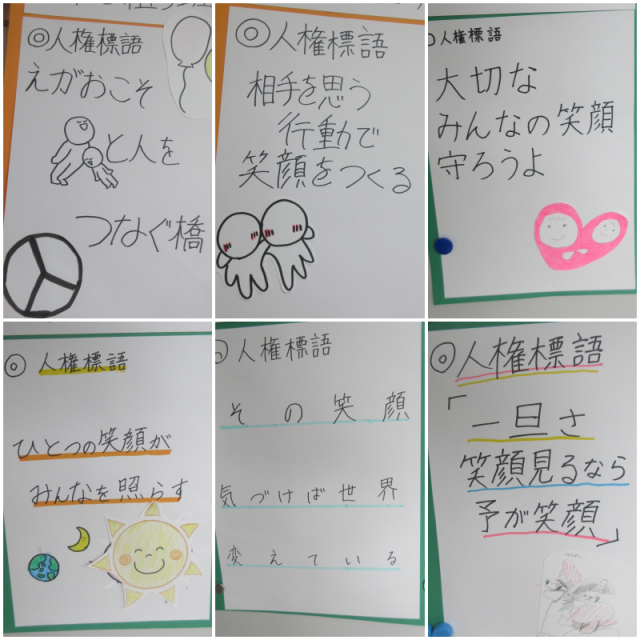 ◎人権標語
えがおこそ
と人を
つなぐ橋
◎人権標語
相手を思う
行動で
笑顔をつくる
◎人権標語
大切な
みんなの笑顔
守ろうよ
◎人権標語
ひとつの笑顔が
みんなを照らす
◎人権標語
その笑顔
気づけば世界
変えている
◎人権標語
「一旦さ
笑顔見るなら
予が笑顔」